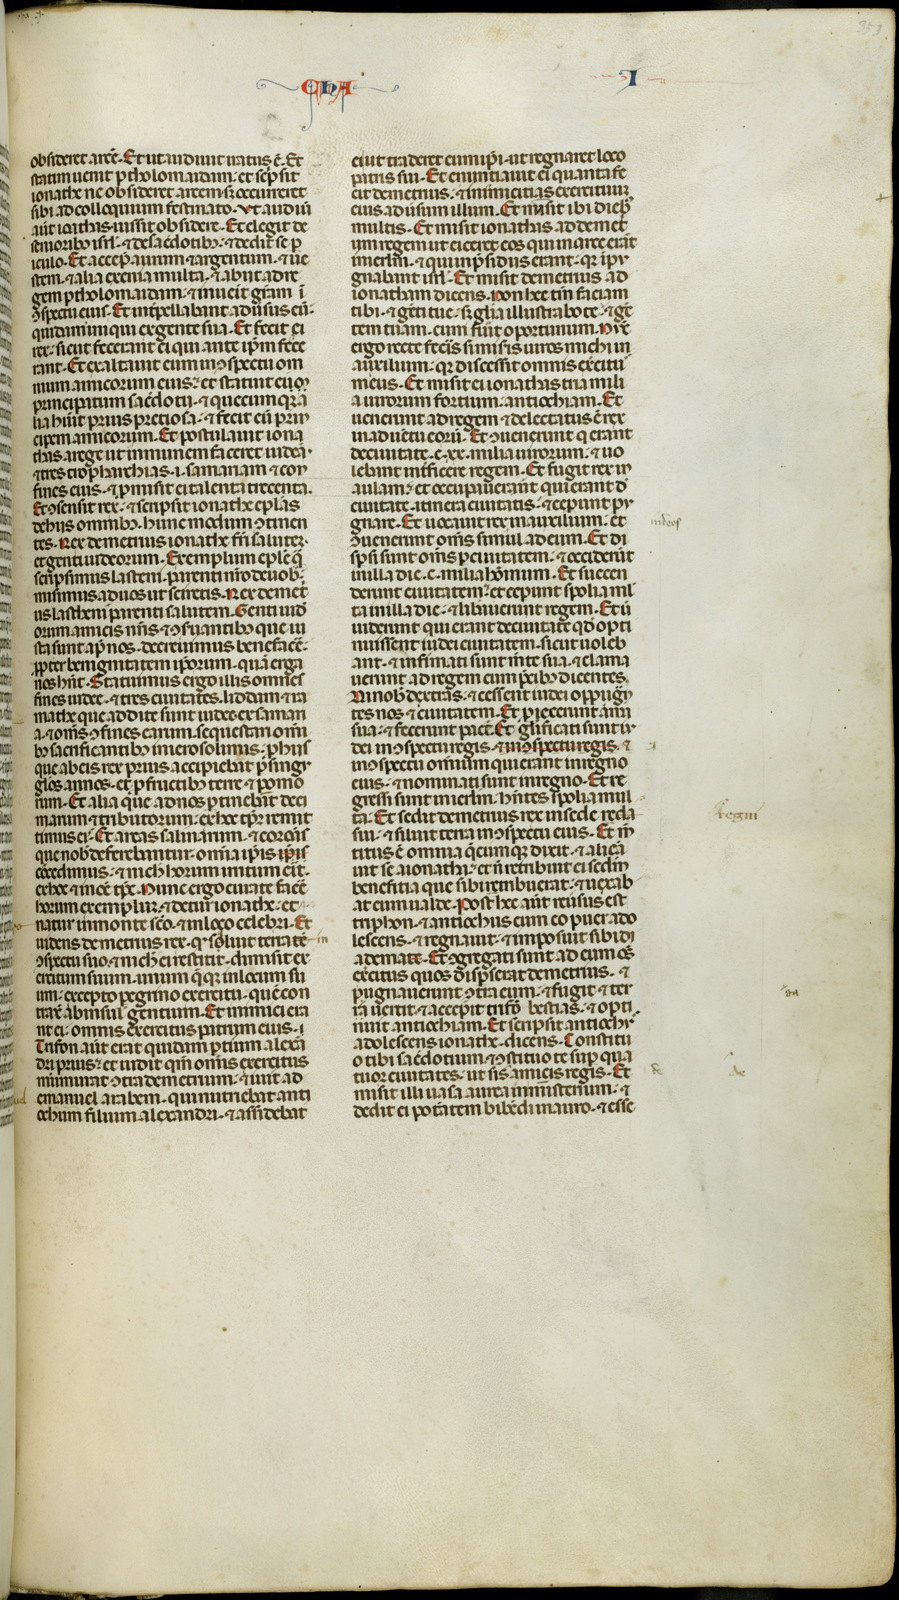 CHA
I
353
obsideret arcē. Et ut audiuit iratus ē. Et
statim uenit ptholomaidam: et sc̄psit
ionathe ne obsideret arcem: sȝ occurreret
sibi ad colloquium festinato. Vt audiu
aūt ionathas iussit obsidere. Et elegit de
senioribȝ isrl̄. ⁊ de sac̄dotibȝ: ⁊ dedit se p
iculo. Et accep̄ aurum ⁊ argentum. ⁊ ue
stem. ⁊ alia exenia multa. ⁊ abiit ad re
gem ptholomaidam. ⁊ inueit gr̄am ī
ꝯspectu eius. Et īt̄pellabant aduˀsus eū.
quidam iniqui ex gente sua. Et fecit ei
rex: sicut fecerant ei qui ante ip̄m fece
rant. Et exaltauit eum in ꝯspectu om
nium amicorum eius: et statuit ei
principatum sac̄dotii. ⁊ quecumqȝ a
lia hūit prius preciosa. ⁊ fecit eū prin
cipem amicorum. Et postulauit iona
thas a rege ut immunem faceret iudeā.
⁊ tres thopharchias. ⁊ samariam ⁊ con
fines eius. ⁊ pmisit ei talenta trecenta.
Et ꝯsensit rex. ⁊ sc̄psit ionathe epl̄as
de hijs omnibȝ. hunc modum ꝯtinen
tes. Rex demetrius ionathe fr̄i salutem
et genti iudeorum. Exemplum epl̄e qȝ
scripsimus lasteni. parenti nr̄o de uob:
misimus ad uos ut sciretis. Rex demet
us lastheni parenti salutem. Genti iud
orum amicis nr̄is. ⁊ ꝯseruantibȝ que iu
sta sunt ap̄ nos. decreuimus benefac̄e.
ꝓpter benignitatem ip̄orum. quā erga
nos hn̄t. Statuimus ergo illis omnes
fines iudee. ⁊ tres ciuitates. liddam ⁊ ra
mathe que addite sunt iudee ex saman
a. ⁊ om̄s ꝯfines earum. sequestrari om̄i
bȝ sacrificantibȝ in ierosolimis. p hijs
que ab eis rex prius accipiebat p sing
los annos. et p fructibȝ terre ⁊ pomo
rum. Et alia que ad nos ptinebāt deci
marum ⁊ tributorum. ex hoc tp̄r remit
timus ei. Et areas salinarum. ⁊ coronas
que nob deferebantur. om̄ia ip̄is
ꝯcedimus. ⁊ nichil horum irritum erit.
ex hoc ⁊ in oē tp̄e. Nunc ergo curate fac̄e
horum exemplum: ⁊ detur ionathe. et
natur in monte sc̄o. ⁊ in loco celebri. Et
uidens demetrius rex. qȝ siluit terra īn
ꝯspectu suo. ⁊ nichil ei restitit. dimisit ex
ercitum suum. unumqȝqȝ in locum su
um. excepto pegrino exercitu. quē con
traxe ab insul gentium. Et inimici era
nt ei. omnis exercitus patrum eius.
Trifon aūt erat quidam ptium alexā
dri prius: et uidit qm̄ om̄is exercitus
murmurat ꝯtra demetrium. ⁊ iuit ad
emanuel arabem. qui nutriebat anti
ochum filium alexandri. ⁊ assidebat
ei ut traderet eum ip̄i. ut regnaret loco
patris sui. Et enuntiauit ei quanta fe
cit demetrius. ⁊ inimicitias exercituū
eius aduˀsum illum. Et māsit ibi diebȝ
multis. Et misit ionathas ad demet
um regem ut eiceret eos qui in arce erāt
in ierlm̄. ⁊ qui in p̄sidiis erant. qȝ ipȝ
gnabant isrl̄. Et misit demetrius ad
ionatham dicens. Non hec tn̄ faciam
tibi. ⁊ genti tue. sȝ gl̄ia illustrabo te. ⁊ ge
tem tuam. cum fuīt oportunum. Nūc
ergo recte fec̄is si misis uiros michi in
auxilium. qȝ discessit omnis exercitus
meus. Et misit ei ionathas tria mili
a uirorum fortium. antiochiam. Et
uenerunt ad regem ⁊ delectatus ē rex
in aduentu eorū. Et ꝯuenerunt q erant
de ciuitate. c. xx. milia uirorum. ⁊ uo
lebant īt̄ficere regem. Et fugit rex in
aulam: et occupauerunt qui erant d̄
ciuitate. itinera ciuitatis. ⁊ cep̄unt pu
gnare. Et uocauit rex in auxilium. et
iudeos
ꝯuenerunt om̄s simul ad eum. Et di
sp̄si sunt om̄s p ciuitatem. ⁊ occiderūt
in illa die. c. milia hōinum. Et succen
derunt ciuitatem: et cep̄unt spolia ml̄
ta in illa die. ⁊ lib̄auerunt regem. Et ū
uiderunt qui erant de ciuitate qd̄ opti
nuissent iudei ciuitatem. sicut uoleb
ant. ⁊ infirmati sunt m̄te sua. ⁊ clama
uerunt ad regem cum p̄cibȝ dicentes.
Da nob dext̄ras. ⁊ cessent iudei oppugn
tes nos ⁊ ciuitatem. Et piecerunt arma
sua. ⁊ fecerunt pacē. Et gl̄ificati sunt iu
dei in ꝯspectu regis. ⁊ in ꝯspectu regis. ⁊
in ꝯspectu omnium qui erant in regno
eius. ⁊ nominati sunt in regno. Et re
gressi sunt in ierlm̄. hn̄tes spolia mul
ta. Et sedit demetrius rex in sede regni
regni
sui. ⁊ siluit terra in ꝯspectu eius. Et m̄
titus ē omnia qcumqȝ dixit. ⁊ aliena
uit se a ionatha. et n̄ retribuit ei sedm̄
beneficia que sibi retribuerat. ⁊ uexab
at eum ualde. Post hec aūt reuˀsus est
triphon. ⁊ antiochus cum eo puer ado
lescens. ⁊ regnauit. ⁊ imposuit sibi di
adema. Et ꝯgregati sunt ad eum oēs
exercitus quos disp̄serat demetrius. ⁊
pugnauerunt ꝯtra eum. ⁊ fugit ⁊ ter
ga uertit. ⁊ accepit trifō bestias. ⁊ opti
nuit antiochiam. Et scripsit antiochȝ
adolescens ionathe. dicens. Constitu
o tibi sac̄dotium. ⁊ ꝯstituo te sup qua
tuor ciuitates. ut sis amicis regis. Et
de
misit illi uasa aurea in ministerium. ⁊
dedit ei potātem bibēdi in auro. ⁊ esse